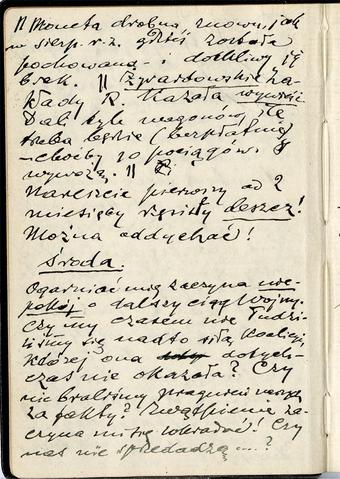 || Moneta drobna znowu, jak
w sierp. r. z. gdzieś została
pochowana - i dotkliwy jej
brak. || Żyrardowskie Za-
kłady R. kazała wywieźć.
Dali tyle wagonów, ile
trzeba będzie (bezpłatnie)
- choćby 30 pociągów.
wywożą. ||
Nareszcie pierwszy od 2
miesięcy rzęsisty deszcz!
Można oddychać!
Środa.
Ogarniać mię zaczyna nie-
pokój o dalszy ciąg Wojny.
Czy my czasem nie łudzi-
liśmy się nadto siłą Koalicji,
której ona dotych-
czas nie okazała? Czy
nie braliśmy pragnień naszych
za fakty? Zwątpienie za-
czyna mi się wkradać! Czy
nas nie sprzedadzą ....?